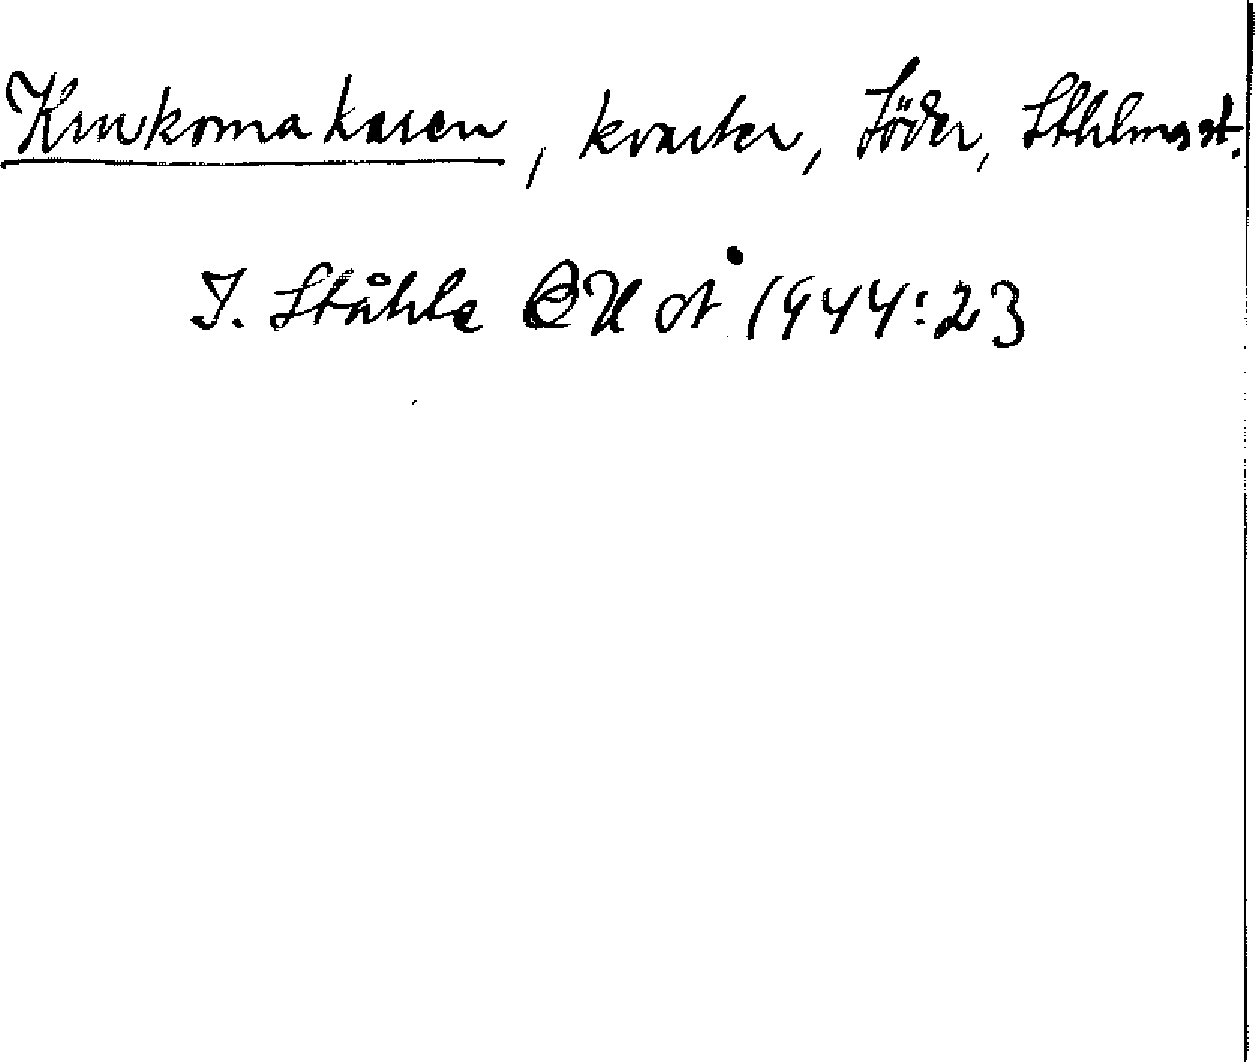 Krukomakaren, kvarter, Söder, Sthlms st.
I. Ståhle 1944:23